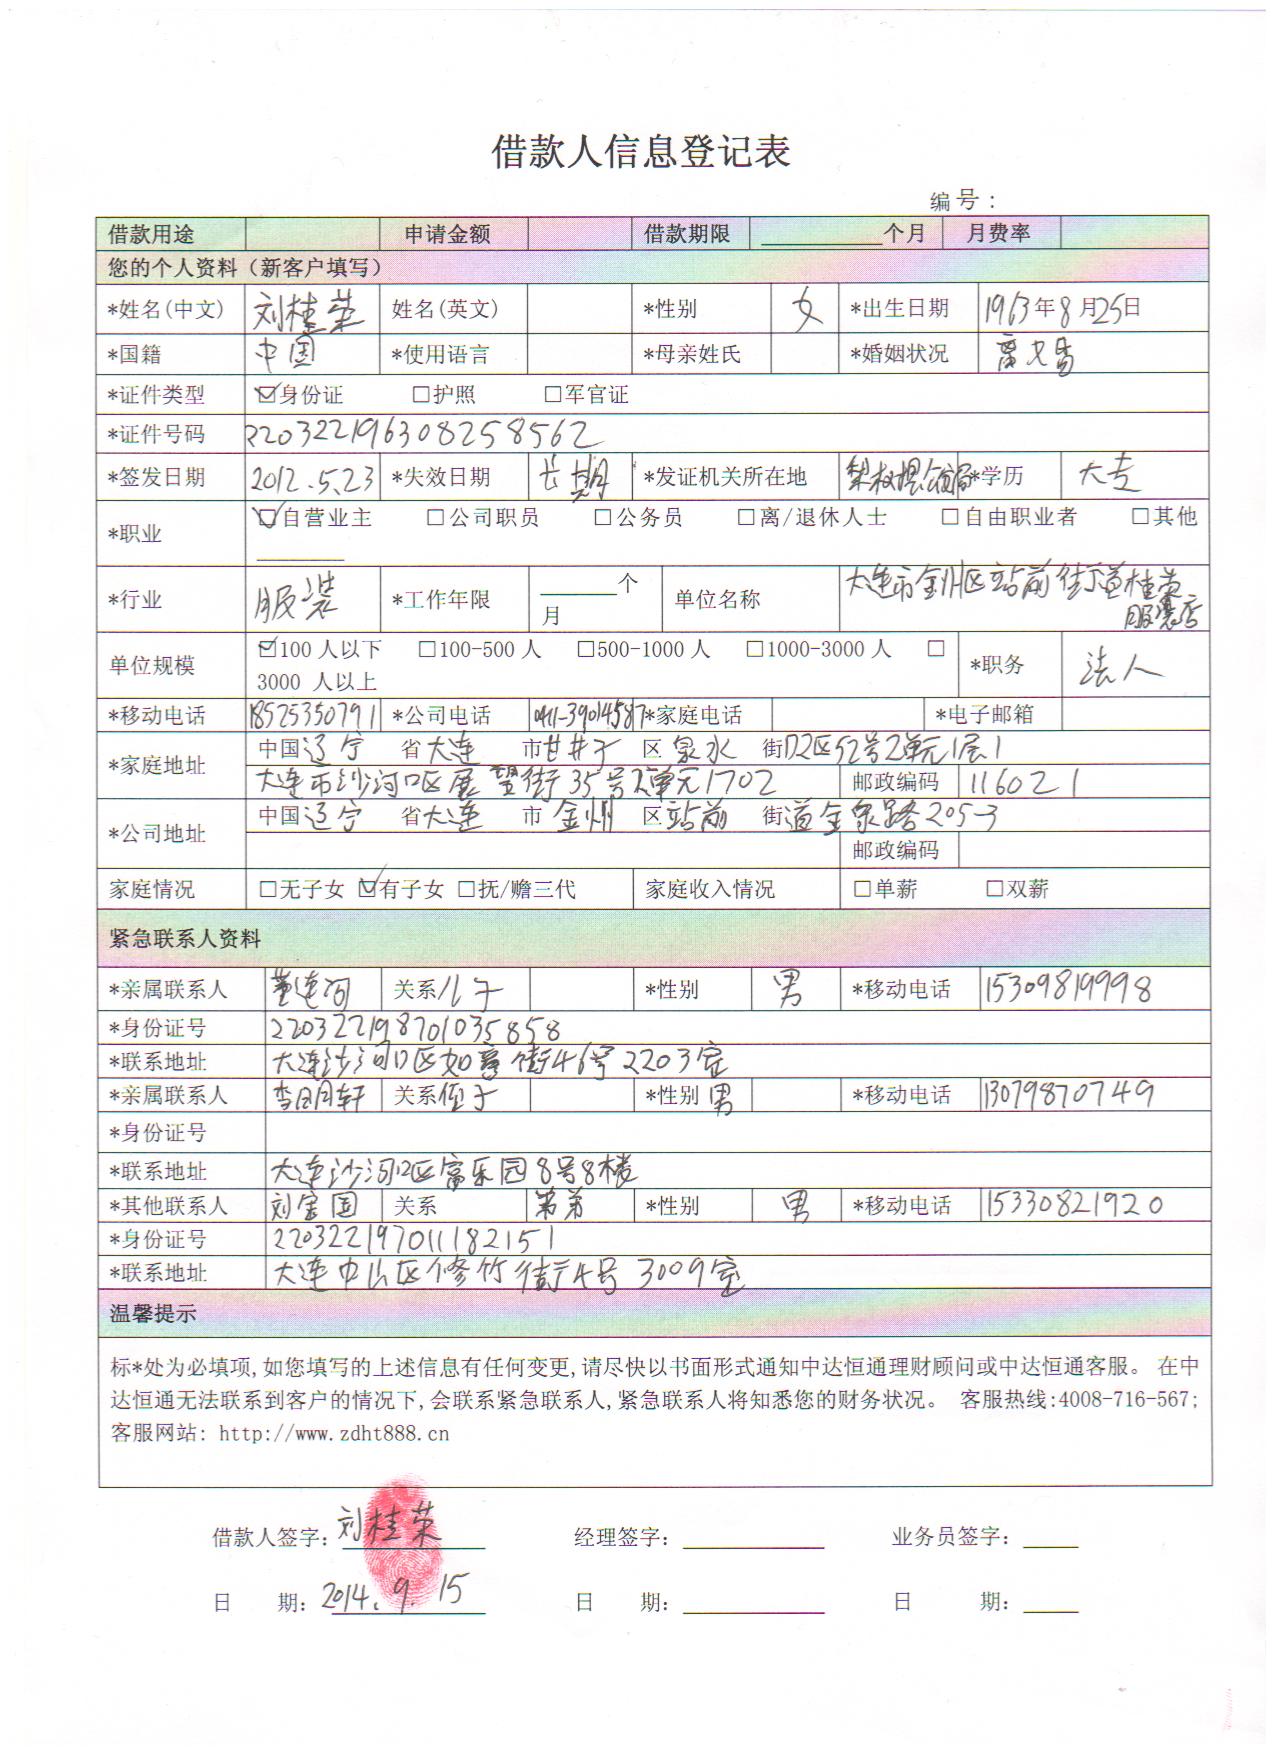 借款人信息登记表
编号：
借款用途 申请金额 借款期限 ________个月 月费率
您的个人资料（新客户填写）
*姓名(中文) 刘桂荣 姓名(英文) *性别 女 *出生日期 1963年8月25日
*国籍 中国 *使用语言 *母亲姓氏 *婚姻状况
*证件类型 ☑身份证 □护照 □军官证
*证件号码 220322196308258562
*签发日期 2012.5.23 *失效日期 长期 *发证机关所在地 *学历 大专
*职业 ☑自营业主 □公司职员 □公务员 □离/退休人士 □自由职业者 □其他
________
*行业 服装 *工作年限 ______个月 单位名称 大连市金州区站前街道桂荣服装店
单位规模 ☑100 人以下 □100-500 人 □500-1000 人 □1000-3000 人 □
3000 人以上 *职务 法人
*移动电话 18525350791 *公司电话 0411-39014587 *家庭电话 *电子邮箱
*家庭地址 中国辽宁 省大连 市甘井子 区泉水 街D2区52号2单元1层1
大连市沙河口区展望街35号2单元1702 邮政编码 116021
*公司地址 中国辽宁 省大连 市金州 区站前 街道金泉路205-3
邮政编码
家庭情况 □无子女 ☑有子女 □抚/赡三代 家庭收入情况 □单薪 □双薪
紧急联系人资料
*亲属联系人 董连河 关系儿子 *性别 男 *移动电话 15309819998
*身份证号 220322198701035858
*联系地址 大连沙河口区如意街46号2203室
*亲属联系人 李明轩 关系侄子 *性别 男 *移动电话 13079870749
*身份证号
*联系地址 大连沙河口区富乐园8号8楼
*其他联系人 刘金国 关系 弟弟 *性别 男 *移动电话 15330821920
*身份证号 220322197011182151
*联系地址 大连中山区修竹街4号3009室
温馨提示
标*处为必填项,如您填写的上述信息有任何变更,请尽快以书面形式通知中达恒通理财顾问或中达恒通客服。 在中
达恒通无法联系到客户的情况下,会联系紧急联系人,紧急联系人将知悉您的财务状况。 客服热线:4008-716-567;
客服网站: http://www.zdht888.cn
借款人签字: 刘桂荣 经理签字: ________ 业务员签字: ____
日 期: 2014.9.15 日 期: ________ 日 期: ____